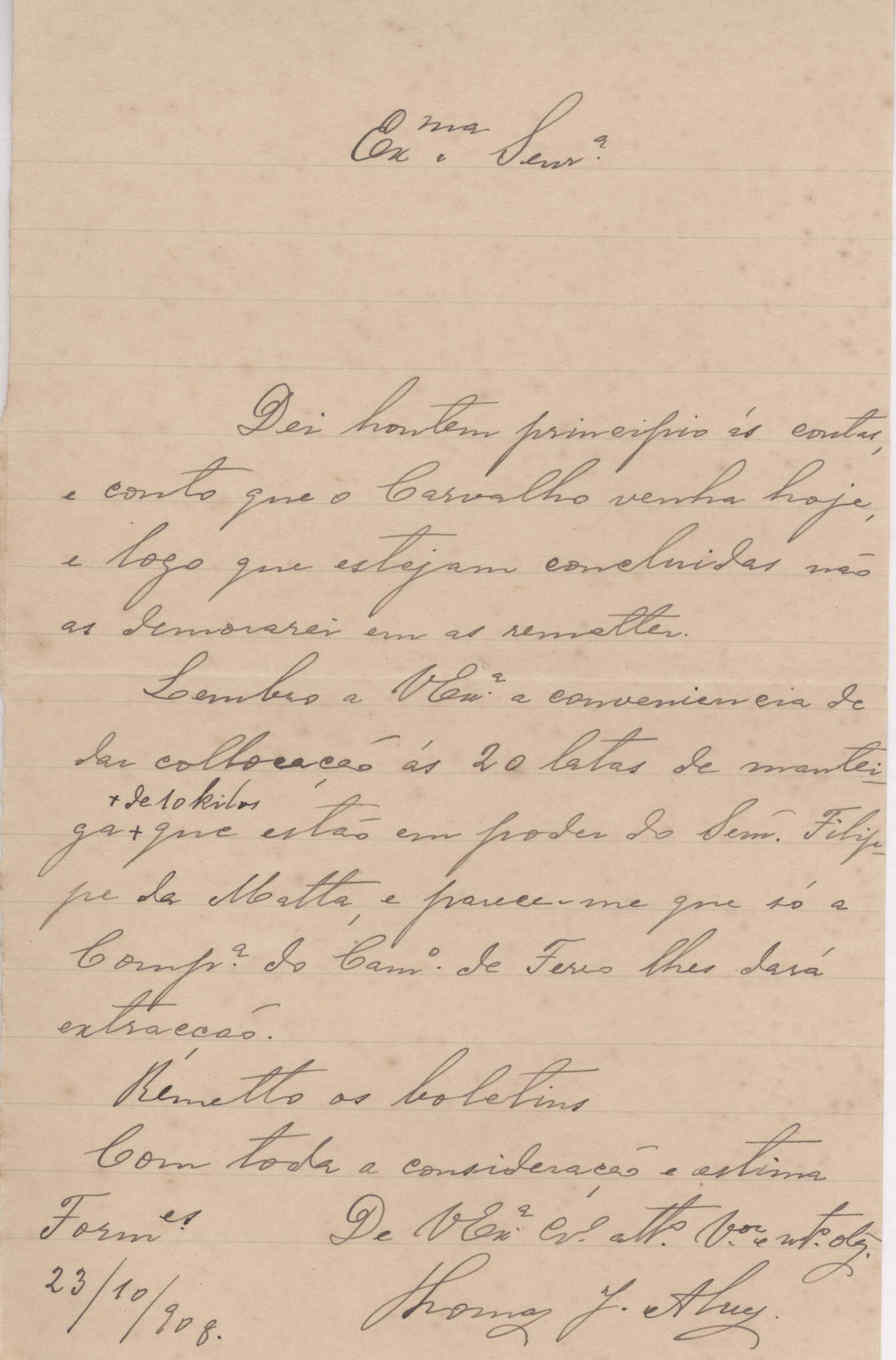 Ex.ma Senr.ª
Dei hontem principio ás contas,
e conto que o Carvalho venha hoje,
e logo que estejam concluidas não
as demorarei em as remetter.
Lembro a VEx.ª a conveniencia de
dar collocação ás 20 latas de mantei-
+ de 10 kilos
ga + que estão em poder do Senr. Filip-
pe da Matta, e parece-me que só a
Comp.ª do Cam.º de Ferro lhes dará
extracção.
Remetto os boletins
Com toda a consideração e estima
Form.es De VEx.ª Cr.º att.º V.or e mt.º obg.
23/10/908. Thomaz J.